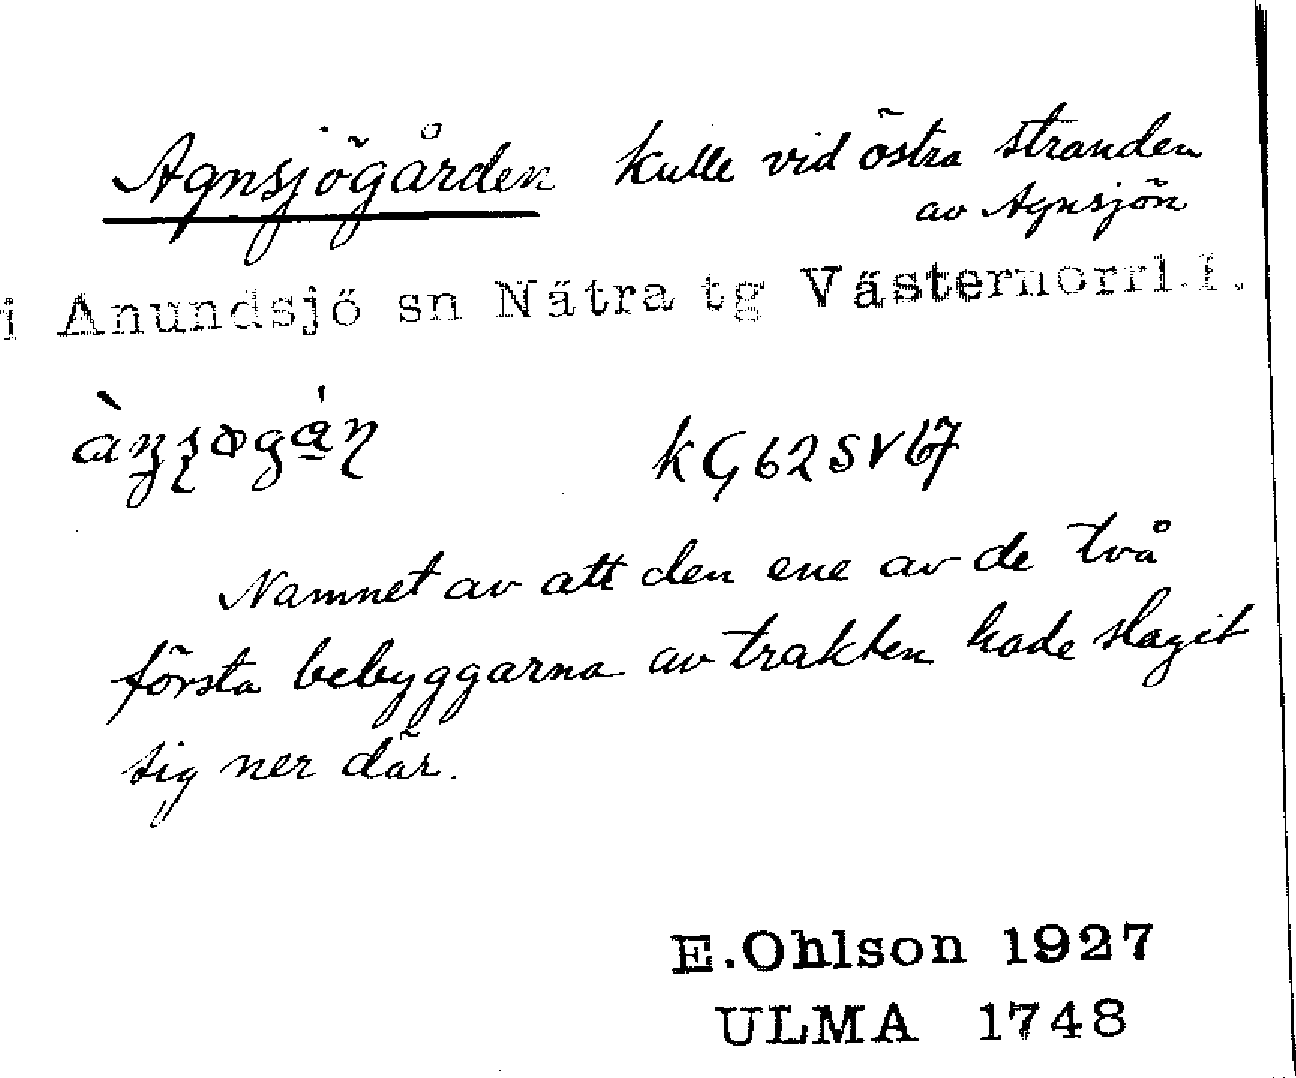 Agnsjögården kulle vid östra stranden
av Agnsjön
i Anundsjö sn Nätra tg Västernorrl.l.
Namnet av att den ene av de två
första bebyggarna av trakten hade slagit
sig ner där.
E.Ohlson 1927
ULMA 1748